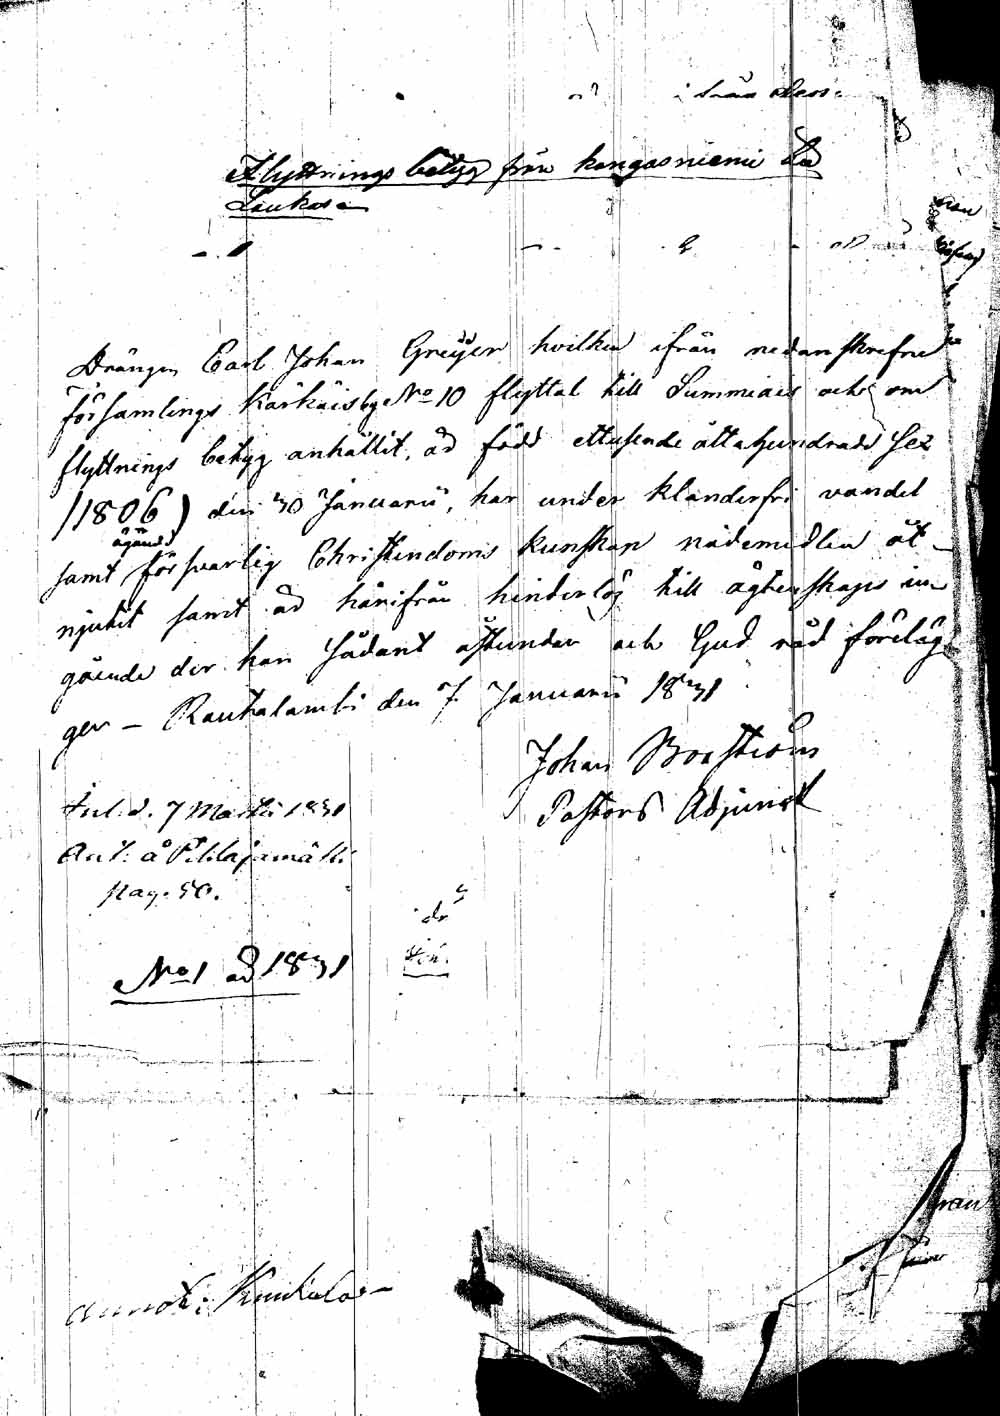 Flyttnings betyg från kangasniemi Ad
Laukas
Drängen Carl Johan Greijer hvilken ifrån nedanskrefne
församlings Kärkäisby No 10 flyttat till Summiais och om
flyttnings betyg anhållit, är född ettusende åttahundrade sex
(1806) den 30 Januarii, har under klanderfri vandel
ägande
samt försvarlig Christendoms kunskap nådemedlen åt-
njutit samt är härifrån hinderlös till ägtenskaps in
gående der han sådant åstundar och Gud råd föreläg
ger - Rautalambi den 7 Januarii 1831
Johan Boström
Pastors Adjunct
Inl. d. 7 Martii 1831
Ant: å Pillajamäki
pag. 50.
No 1 ad 1831
annot: Kuukala